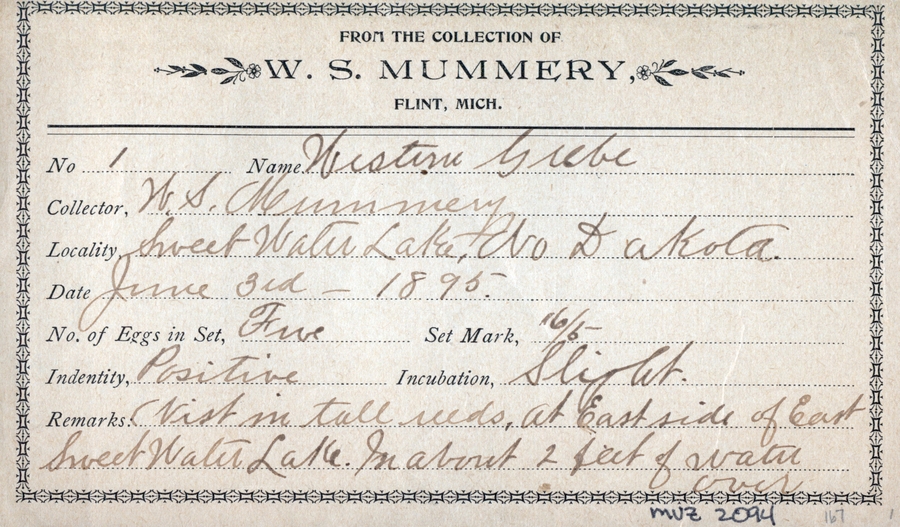 FROM THE COLLECTION OF
W. S. MUMMERY,
FLINT, MICH.
No 1 Name Western Grebe
Collector, W. S. Mummery
Locality, Sweet Water Lake, No Dakota.
Date June 3rd — 1895.
No. of Eggs in Set, Five Set Mark, "6/5
Indentity, Positive Incubation, Slight.
Remarks: Nest in tall reeds, at East side of East
Sweet Water Lake. In about 2 feet of water
over
MVZ 2094 167